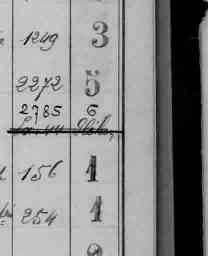 1249 3
2272 5
2785 6
156 1
254 1